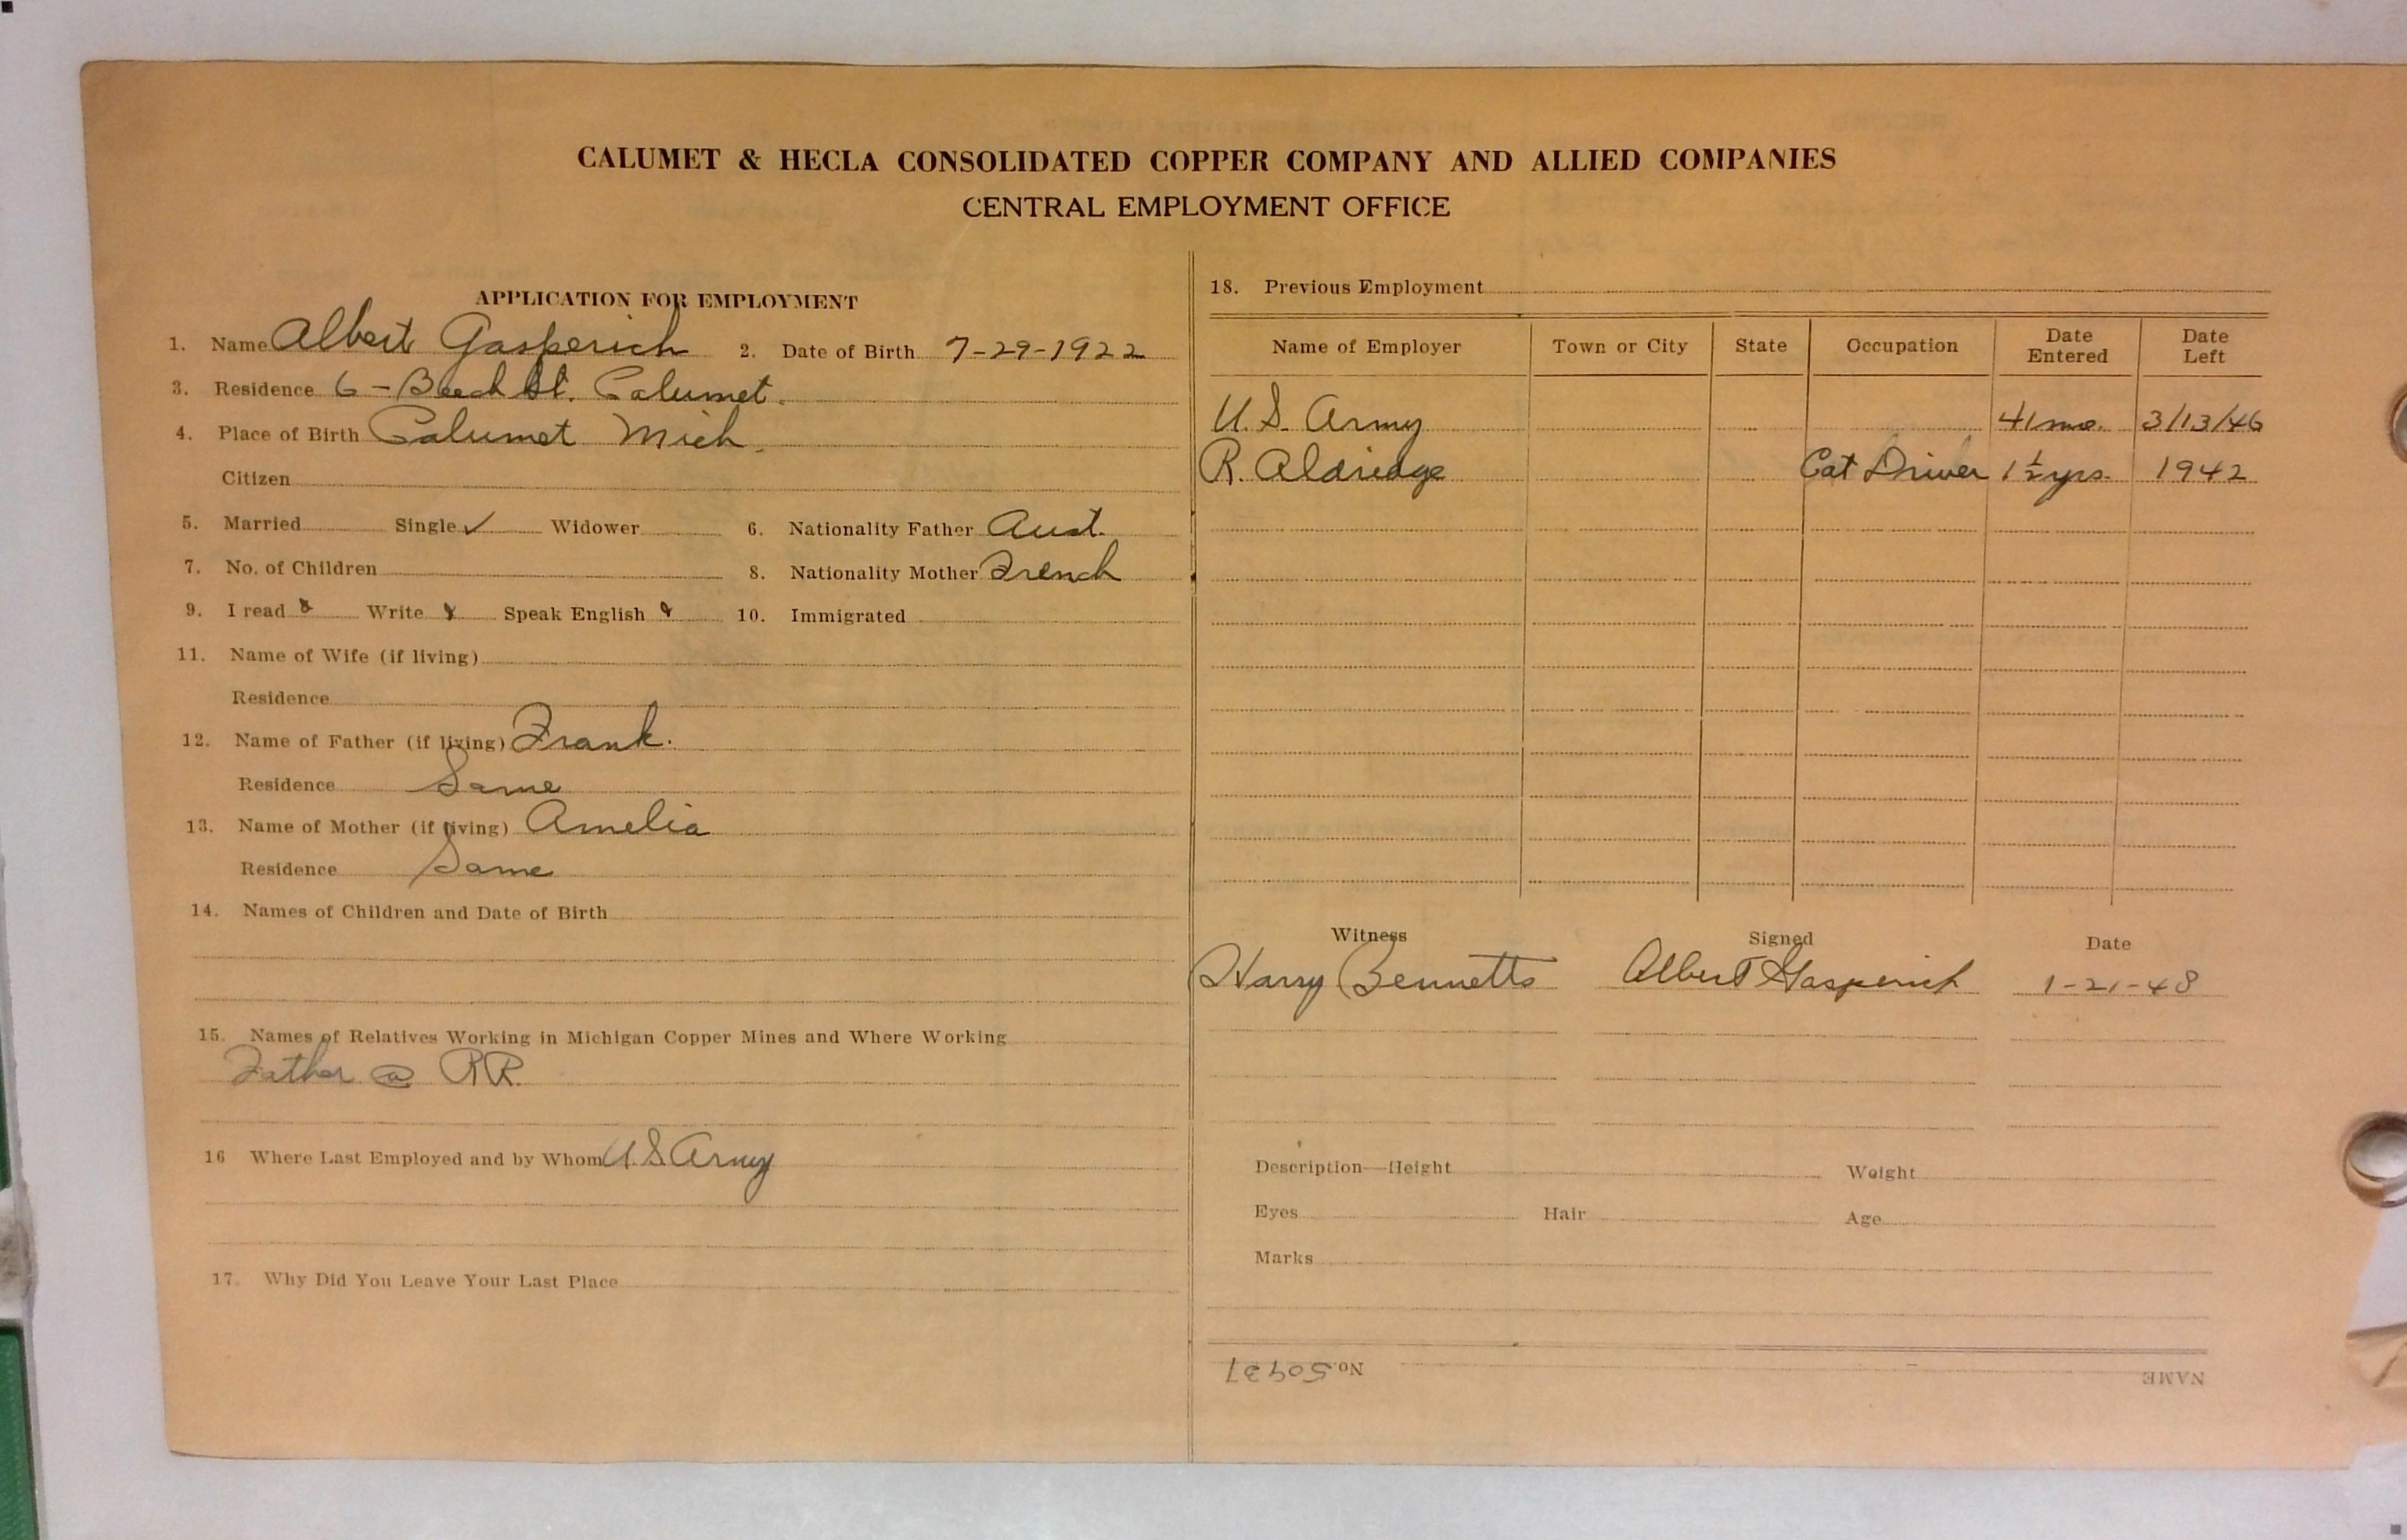 CALUMET & HECLA CONSOLIDATED COPPER COMPANY AND ALLIED COMPANIES
CENTRAL EMPLOYMENT OFFICE
APPLICATION FOR EMPLOYMENT
1. Name Albert Gasperich 2. Date of Birth 7-29-1922
3. Residence 6 - Beech St. Calumet.
4. Place of Birth Calumet Mich.
Citizen
5. Married Single ✓ Widower 6. Nationality Father Aust.
7. No. of Children 8. Nationality Mother French
9. I read Write Speak English 10. Immigrated
11. Name of Wife (if living)
Residence
12. Name of Father (if living) Frank.
Residence Same
13. Name of Mother (if living) Amelia
Residence Same
14. Names of Children and Date of Birth
15. Names of Relatives Working in Michigan Copper Mines and Where Working
Father @ RR.
16 Where Last Employed and by Whom U.S. Army
17. Why Did You Leave Your Last Place
18. Previous Employment
Name of Employer Town or City State Occupation Date Entered Date Left
U.S. Army 41 mo. 3/13/46
R. Aldriedge Cat Driver 1 1/2 yrs. 1942
Witness Signed Date
Harry Bennetts Albert Gasperich 1-21-48
Description—Height Weight
Eyes Hair Age
Marks
NAME No. 50437